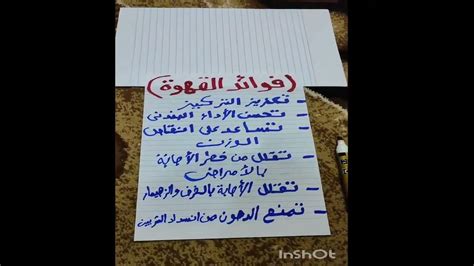 (فوائد القهوة)
- تعزيز التركيز
- تحسن الأداء البدني
- تساعد على انقاص
الوزن
- تقلل من خطر الأصابة
بالأمراض
- تقلل الأصابة بالخرف والزهايمر
- تمنع الدهون من انسداد الشريين
InShOt